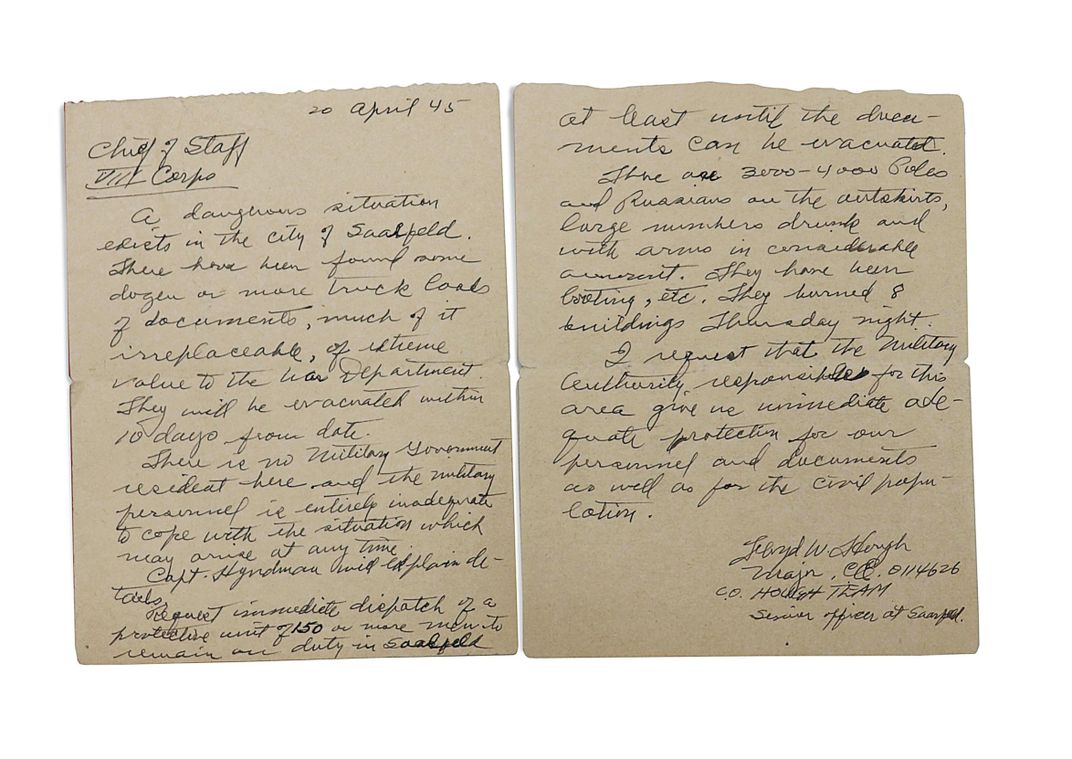 20 April 45
Chief of Staff
VIII Corps
A dangerous situation
exists in the city of Saalfeld.
There have been found some
dozen or more truck loads
of documents, much of it
irreplaceable, of extreme
value to the War Department.
They will be evacuated within
10 days from date.
There is no Military Government
resident here and the military
personnel is entirely inadequate
to cope with the situation which
may arise at any time.
Capt. Hyndman will explain de-
tails.
Request immediate dispatch of a
protective unit of 150 or more men to
remain on duty in Saalfeld
at least until the docu-
ments can be evacuated.
There are 3000-4000 Poles
and Russians on the outskirts,
large numbers drunk and
with arms in considerable
amount. They have been
looting, etc. They burned 8
buildings Thursday night.
I request that the Military
Authority responsible for this
area give us immediate ade-
quate protection for our
personnel and documents
as well as for the civil popu-
lation.
Floyd W. Hough
Major, CE. 0114626
C.O. HOUGH TEAM
Senior officer at Saalfeld.